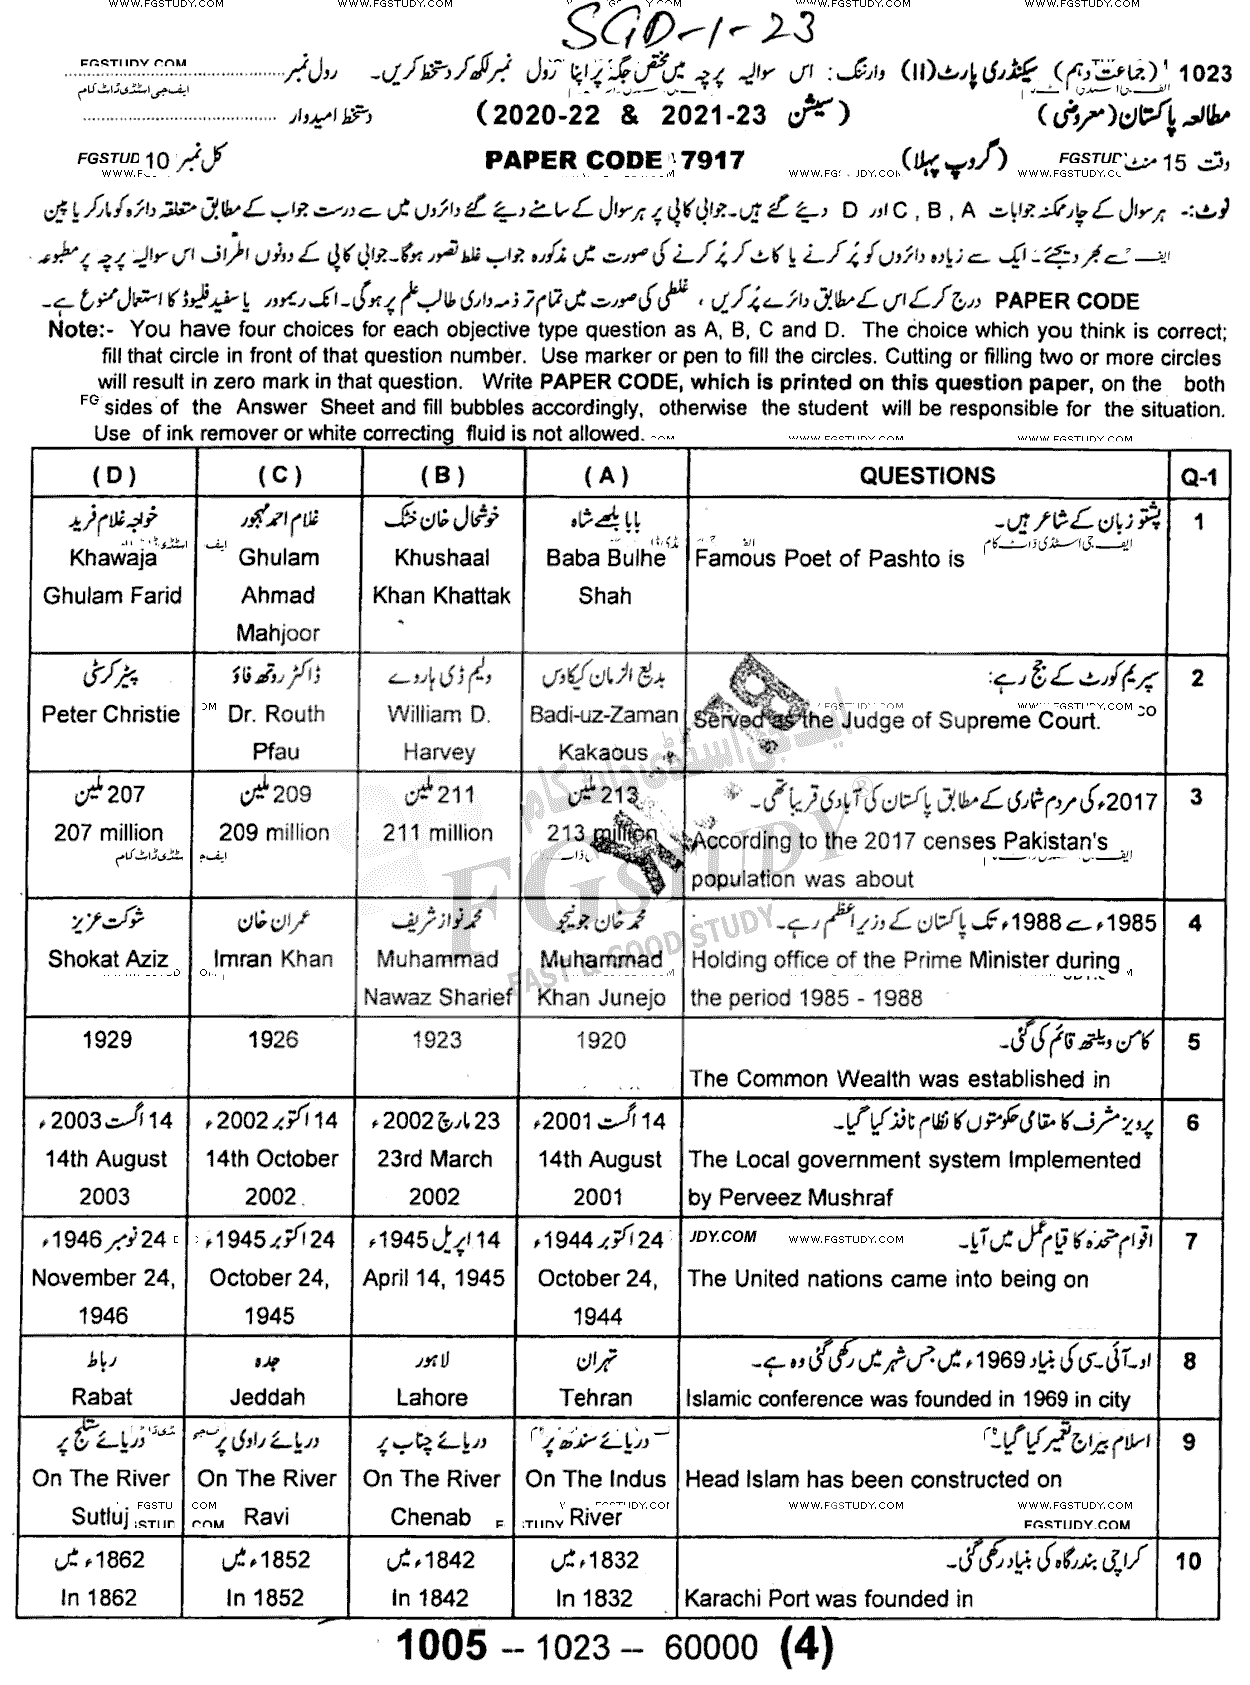 WWW.FGSTUDY.COM
SGD-1-23
1023 (جماعت دہم) سیکنڈری پارٹ (II) وارننگ: اس سوالیہ پرچہ میں مختص جگہ پر اپنا رول نمبر لکھ کر دستخط کریں۔ رول نمبر
FGSTUDY.COM
ایف جی اسٹڈی ڈاٹ کام
مطالعہ پاکستان (معروضی) (سیشن 2021-23 & 2020-22) دستخط امیدوار
وقت 15 منٹ (گروپ پہلا) PAPER CODE 7917 کل نمبر 10
نوٹ:- ہر سوال کے چار ممکنہ جوابات A ، B ، C اور D دیئے گئے ہیں۔ جوابی کاپی پر ہر سوال کے سامنے دیئے گئے دائروں میں سے درست جواب کے مطابق متعلقہ دائرہ کو مارکر یا پین
سے بھر دیجئے۔ ایک سے زیادہ دائروں کو پُر کرنے یا کاٹ کر پُر کرنے کی صورت میں مذکورہ جواب غلط تصور ہوگا۔ جوابی کاپی کے دونوں اطراف اس سوالیہ پرچہ پر مطبوعہ
PAPER CODE درج کر کے اس کے مطابق دائرے پُر کریں ، غلطی کی صورت میں تمام تر ذمہ داری طالب علم پر ہوگی۔ انک ریموور یا سفید فلیوڈ کا استعمال ممنوع ہے۔
Note:- You have four choices for each objective type question as A, B, C and D. The choice which you think is correct;
fill that circle in front of that question number. Use marker or pen to fill the circles. Cutting or filling two or more circles
will result in zero mark in that question. Write PAPER CODE, which is printed on this question paper, on the both
sides of the Answer Sheet and fill bubbles accordingly, otherwise the student will be responsible for the situation.
Use of ink remover or white correcting fluid is not allowed.
(D) (C) (B) (A) QUESTIONS Q-1
خواجہ غلام فرید غلام احمد مہجور خوشحال خان خٹک بابا بلھے شاہ پشتو زبان کے شاعر ہیں۔ 1
Khawaja Ghulam Khushaal Baba Bulhe Famous Poet of Pashto is
Ghulam Farid Ahmad Khan Khattak Shah
Mahjoor
پیٹر کرسٹی ڈاکٹر روتھ فاؤ ولیم ڈی ہاروے بدیع الزمان کیکاؤس سپریم کورٹ کے جج رہے: 2
Peter Christie Dr. Routh William D. Badi-uz-Zaman Served as the Judge of Supreme Court.
Pfau Harvey Kakaous
207 ملین 209 ملین 211 ملین 213 ملین 2017ء کی مردم شماری کے مطابق پاکستان کی آبادی قریباً تھی۔ 3
207 million 209 million 211 million 213 million According to the 2017 censes Pakistan's
population was about
شوکت عزیز عمران خان محمد نواز شریف محمد خان جونیجو 1985ء سے 1988ء تک پاکستان کے وزیراعظم رہے۔ 4
Shokat Aziz Imran Khan Muhammad Muhammad Holding office of the Prime Minister during
Nawaz Sharief Khan Junejo the period 1985 - 1988
1929 1926 1923 1920 کامن ویلتھ قائم کی گئی۔ 5
The Common Wealth was established in
14 اگست 2003ء 14 اکتوبر 2002ء 23 مارچ 2002ء 14 اگست 2001ء پرویز مشرف کا مقامی حکومتوں کا نظام نافذ کیا گیا۔ 6
14th August 14th October 23rd March 14th August The Local government system Implemented
2003 2002 2002 2001 by Perveez Mushraf
24 نومبر 1946ء 24 اکتوبر 1945ء 14 اپریل 1945ء 24 اکتوبر 1944ء اقوام متحدہ کا قیام عمل میں آیا۔ 7
November 24, October 24, April 14, 1945 October 24, The United nations came into being on
1946 1945 1944
رباط جدہ لاہور تہران او۔آئی۔سی کی بنیاد 1969ء میں جس شہر میں رکھی گئی وہ ہے۔ 8
Rabat Jeddah Lahore Tehran Islamic conference was founded in 1969 in city
دریائے ستلج پر دریائے راوی پر دریائے چناب پر دریائے سندھ پر اسلام بیراج تعمیر کیا گیا۔ 9
On The River On The River On The River On The Indus Head Islam has been constructed on
Sutluj Ravi Chenab River
1862ء میں 1852ء میں 1842ء میں 1832ء میں کراچی بندرگاہ کی بنیاد رکھی گئی۔ 10
In 1862 In 1852 In 1842 In 1832 Karachi Port was founded in
1005 -- 1023 -- 60000 (4)
FGSTUDY
FAST & GOOD STUDY
ایف جی اسٹڈی ڈاٹ کام